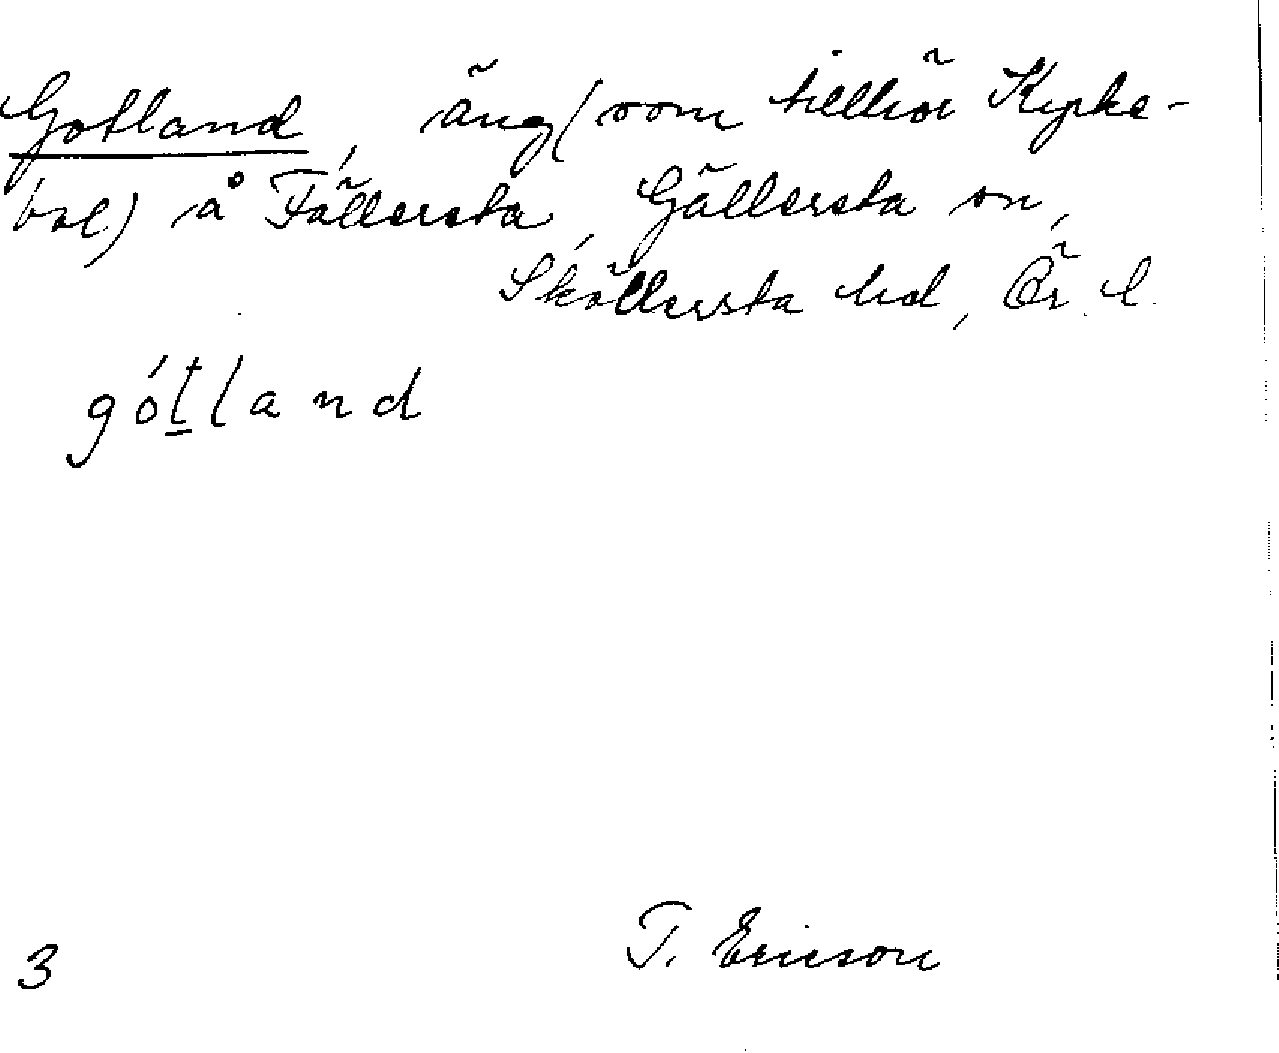 Gotland, äng (som tillhör Kyrke-
bol) å Fällersta, Gällersta sn,
Sköllersta hd, Ör. l.
gótland
T. Ericson
3